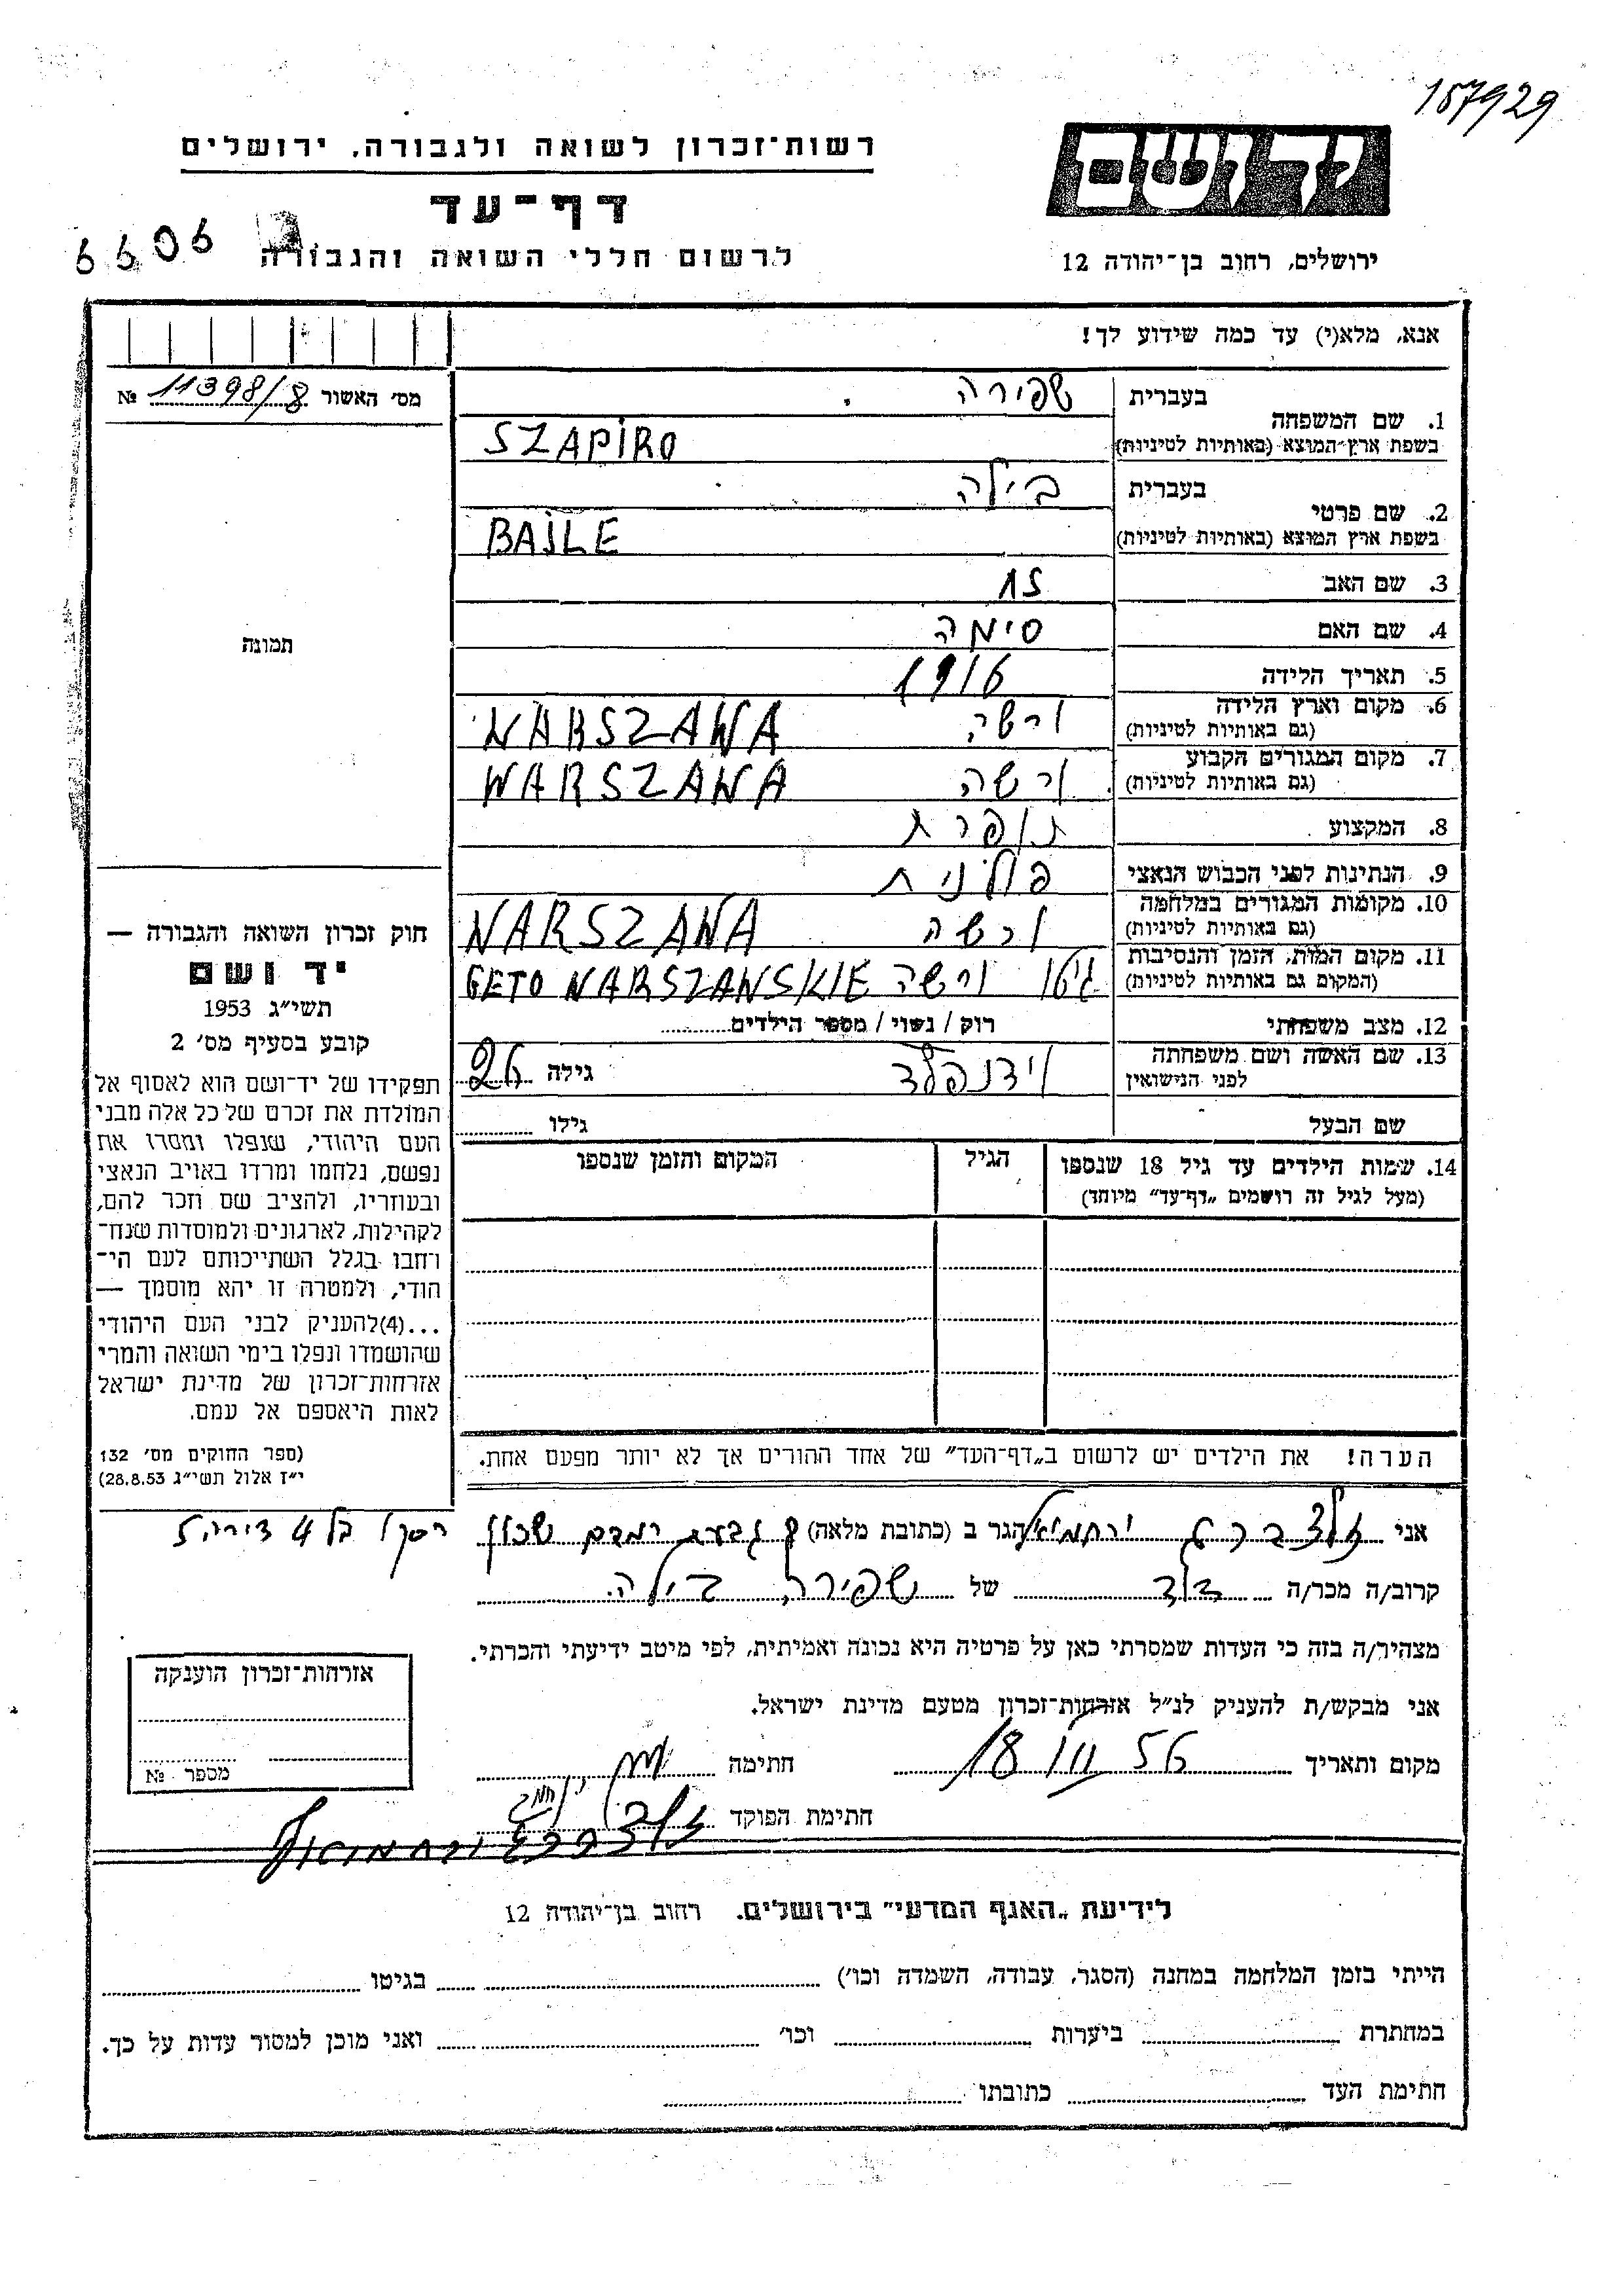 157929
יד ושם
רשות־זכרון לשואה ולגבורה, ירושלים
דף־עד
לרשום חללי השואה והגבורה
6606
ירושלים, רחוב בן־יהודה 12
אנא, מלא(י) עד כמה שידוע לך!
מס׳ האשור 11398/8 №
תמונה
1. שם המשפחה
בעברית שפירה
בשפת ארץ־המוצא (באותיות לטיניות) SZAPIRO
2. שם פרטי
בעברית בילה
בשפת ארץ המוצא (באותיות לטיניות) BAJLE
3. שם האב
4. שם האם סימה
5. תאריך הלידה 1916
6. מקום וארץ הלידה ורשה WARSZAWA
(גם באותיות לטיניות)
7. מקום המגורים הקבוע ורשה WARSZAWA
(גם באותיות לטיניות)
8. המקצוע תופרת
9. הנתינות לפני הכבוש הנאצי פולנית
10. מקומות המגורים במלחמה ורשה WARSZAWA
(גם באותיות לטיניות)
11. מקום המות, הזמן והנסיבות גיטו ורשה GETO WARSZAWSKIE
(המקום גם באותיות לטיניות)
12. מצב משפחתי רוק / נשוי / מספר הילדים
13. שם האשה ושם משפחתה גילה 26
לפני הנישואין
שם הבעל גילו
14. שמות הילדים עד גיל 18 שנספו הגיל המקום והזמן שנספו
(מעל לגיל זה רושמים „דף־עד״ מיוחד)
הערה! את הילדים יש לרשום ב„דף־העד״ של אחד ההורים אך לא יותר מפעם אחת.
חוק זכרון השואה והגבורה —
יד ושם
תשי״ג 1953
קובע בסעיף מס׳ 2
תפקידו של יד־ושם הוא לאסוף אל
המולדת את זכרם של כל אלה מבני
העם היהודי, שנפלו ומסרו את
נפשם, נלחמו ומרדו באויב הנאצי
ובעוזריו, ולהציב שם וזכר להם,
לקהילות, לארגונים ולמוסדות שנח־
רחבו בגלל השתייכותם לעם הי־
הודי, ולמטרה זו יהא מוסמך —
...(4)להעניק לבני העם היהודי
שהושמדו ונפלו בימי השואה והמרי
אזרחות־זכרון של מדינת ישראל
לאות היאספם אל עמם.
(ספר החוקים מס׳ 132
י״ז אלול תשי״ג 28.8.53)
אני ירחמיאל הגר ב (כתובת מלאה) שכון רסקו בל 4 דירה 5
קרוב/ה מכר/ה דוד של שפירה בילה.
מצהיר/ה בזה כי העדות שמסרתי כאן על פרטיה היא נכונה ואמיתית, לפי מיטב ידיעתי והכרתי.
אני מבקש/ת להעניק לנ״ל אזרחות־זכרון מטעם מדינת ישראל.
מקום ותאריך 18/III 56 חתימה
חתימת הפוקד
אזרחות־זכרון הוענקה
מספר №
לידיעת „האגף המדעי״ בירושלים. רחוב בן־יהודה 12
הייתי בזמן המלחמה במחנה (הסגר, עבודה, השמדה וכו׳) בגיטו
במחתרת ביערות וכו׳ ואני מוכן למסור עדות על כך.
חתימת העד כתובתו